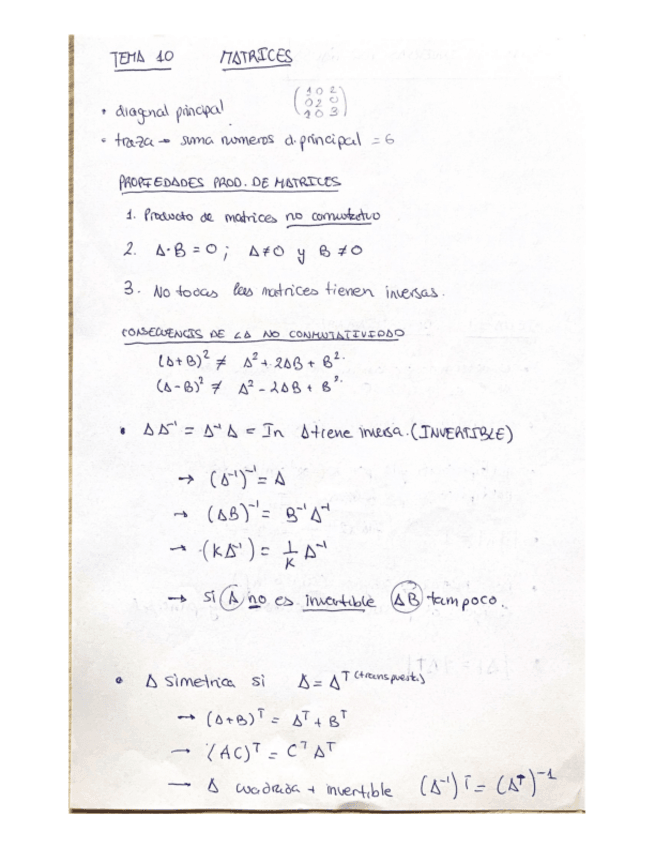 TEMA 10 MATRICES
• diagonal principal
1 0 2
0 2 0
1 0 3
• traza → suma numeros d.principal = 6
PROPIEDADES PROD. DE MATRICES
1. Producto de matrices no conmutativo
2. A·B = 0 ; A≠0 y B≠0
3. No todas las matrices tienen inversas.
CONSECUENCIS DE LA NO CONMUTATIVIDAD
(A+B)² ≠ A² + 2AB + B².
(A-B)² ≠ A² - 2AB + B².
• AA⁻¹ = A⁻¹A = In A tiene inversa. (INVERTIBLE)
→ (A⁻¹)⁻¹ = A
→ (AB)⁻¹ = B⁻¹A⁻¹
→ (KA⁻¹) = 1/K A⁻¹
→ Si A no es invertible AB tampoco.
• A simetrica si A = Aᵀ (transpuesta)
→ (A+B)ᵀ = Aᵀ + Bᵀ
→ (AC)ᵀ = CᵀAᵀ
→ A cuadrada + invertible (A⁻¹)ᵀ = (Aᵀ)⁻¹